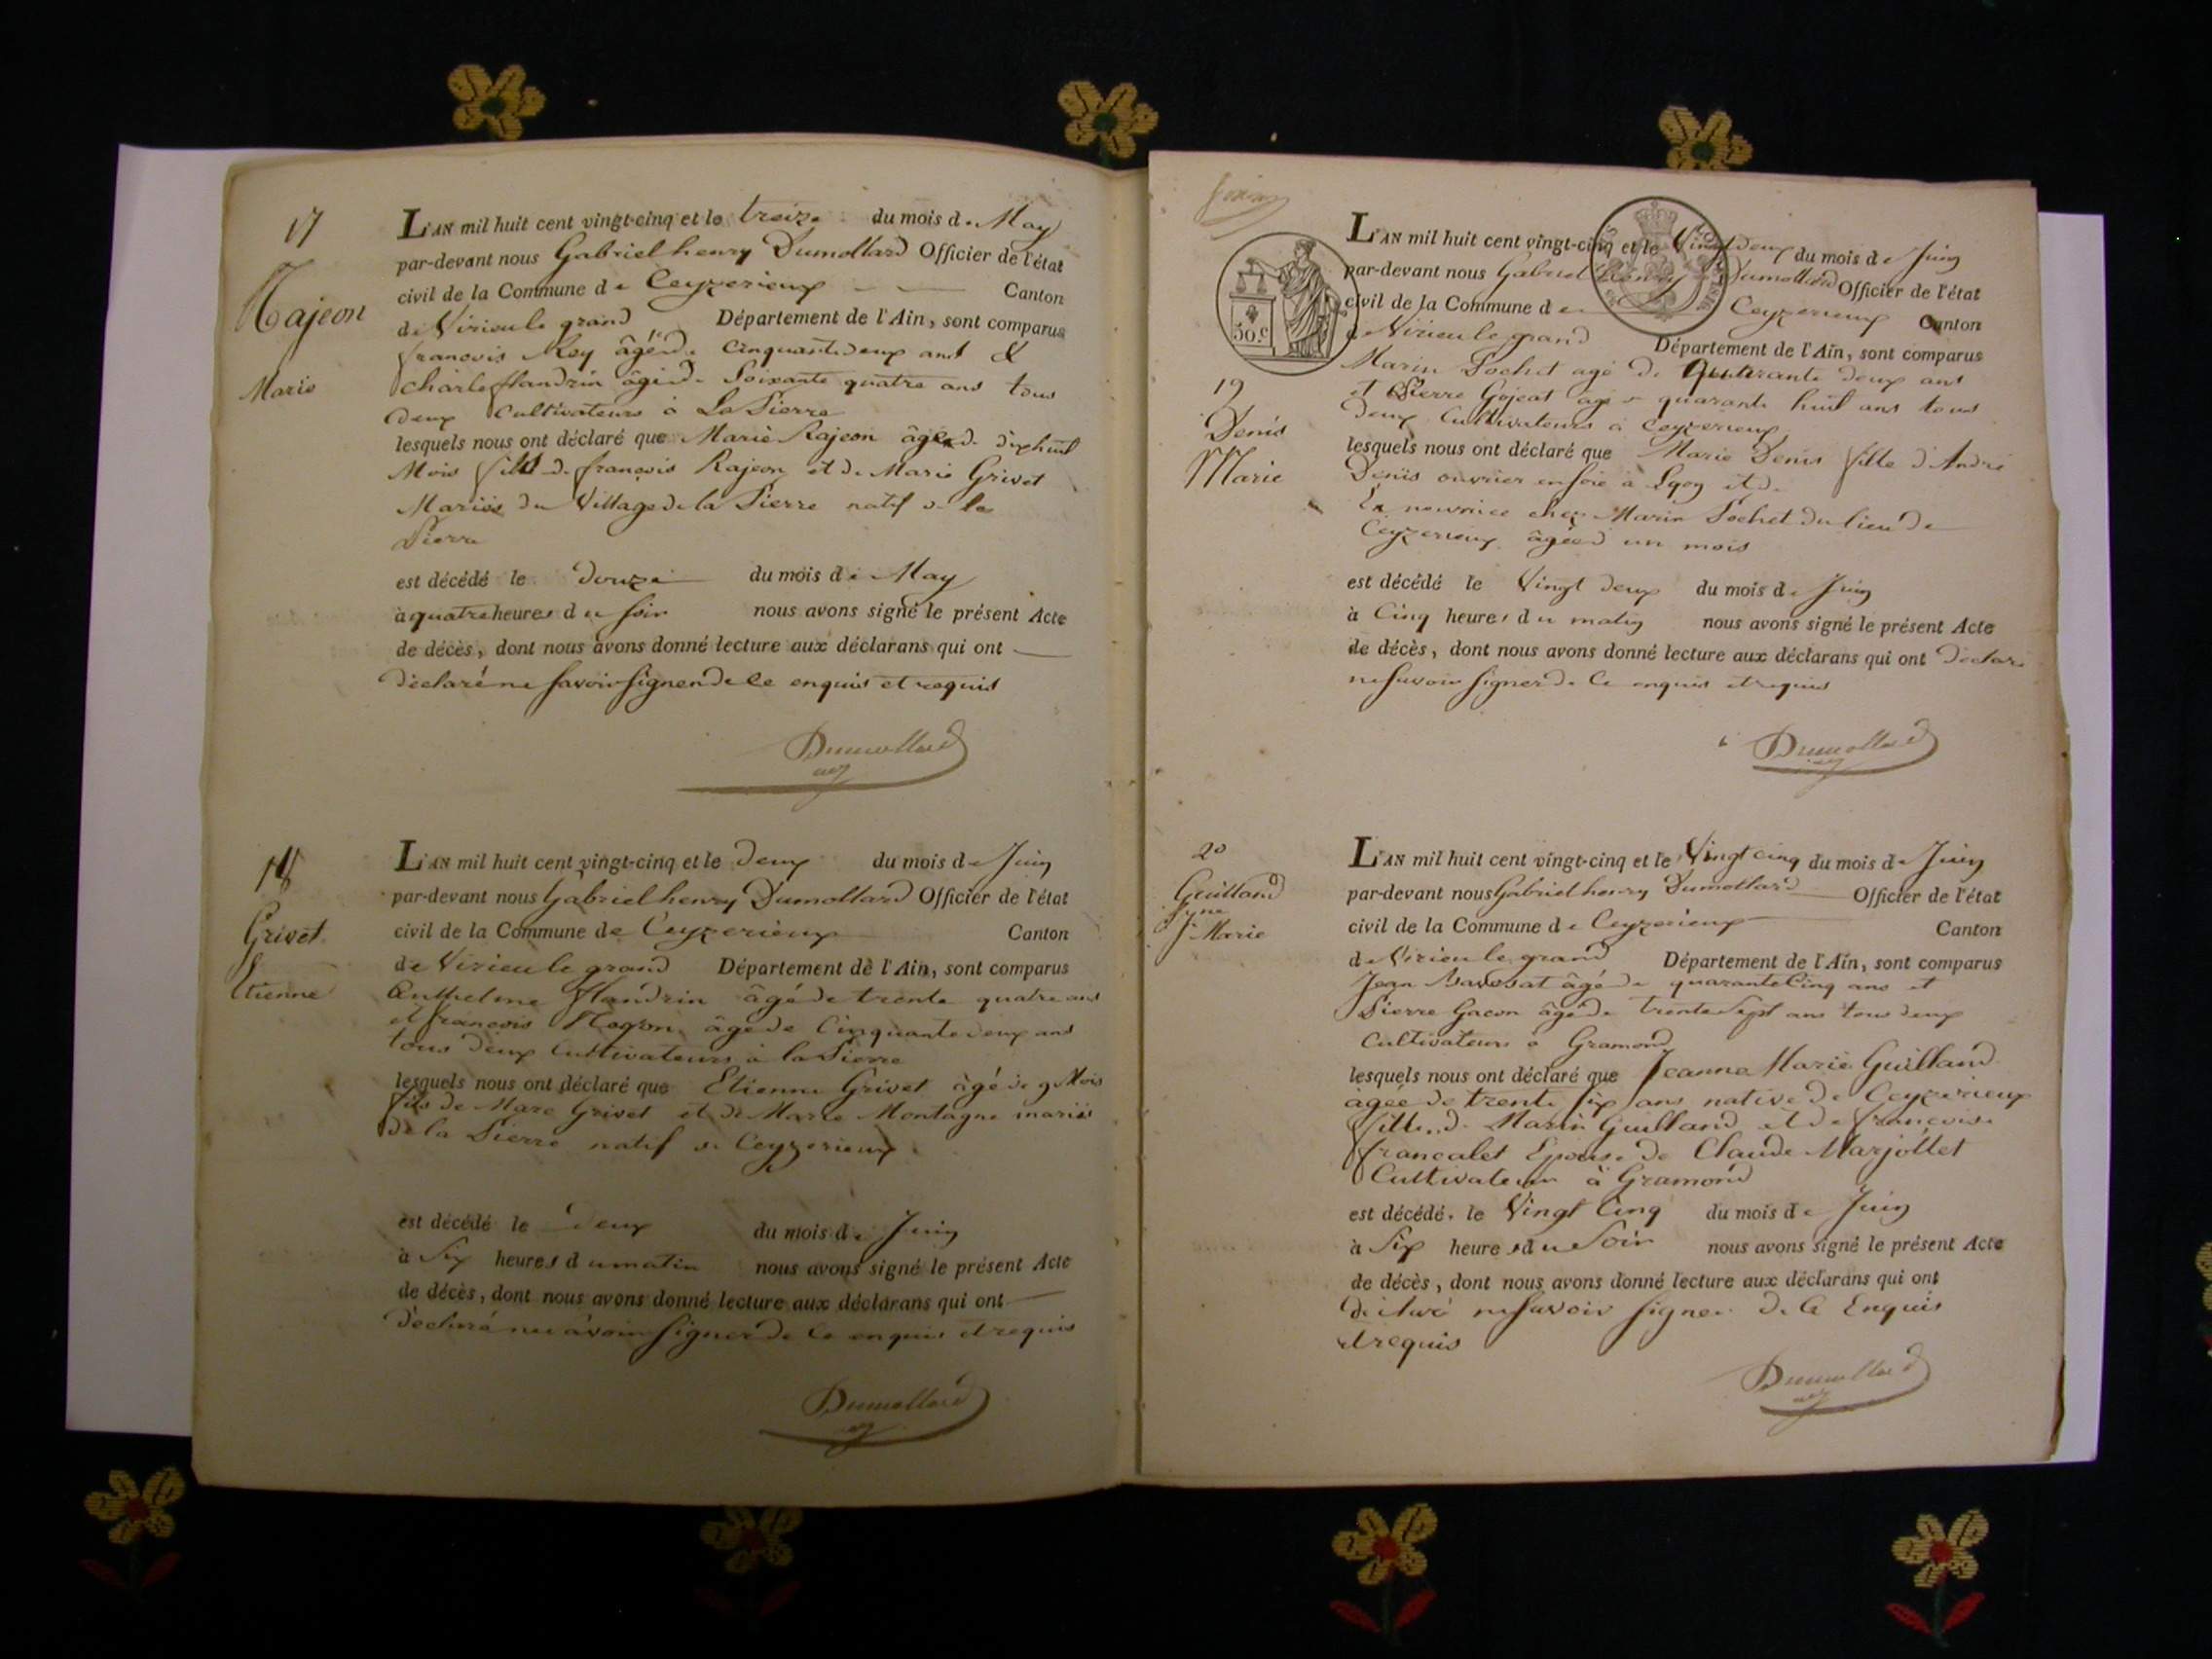 17
Rajeon
Marie
L'AN mil huit cent vingt-cinq et le treize du mois de May
par-devant nous Gabriel henry Dumollard Officier de l'état
civil de la Commune de Ceyzerieux Canton
de Virieu le grand Département de l'Ain, sont comparus
francois Rey âgé de Cinquante deux ans &
Charle flandrin âgé de Soixante quatre ans tous
deux Cultivateurs à La Pierre
lesquels nous ont déclaré que Marie Rajeon âgée de dix huit
Mois fille de françois Rajeon et de Marie Grivet
Mariés du Village de la Pierre natif de la
Pierre
est décédé le douze du mois de May
à quatre heures du soir nous avons signé le présent Acte
de décès, dont nous avons donné lecture aux déclarans qui ont
déclaré ne savoir signer de ce enquis et requis
Dumollard
18
Grivet
Etienne
L'AN mil huit cent vingt-cinq et le deux du mois de Juin
par-devant nous Gabriel henry Dumollard Officier de l'état
civil de la Commune de Ceyzerieux Canton
de Virieu le grand Département de l'Ain, sont comparus
Anthelme flandrin âgé de trente quatre ans
et francois âgé de Cinquante deux ans
tous deux Cultivateurs à la Pierre
lesquels nous ont déclaré que Etienne Grivet âgé de 9 Mois
fils de Marc Grivet et de Marie Montagne mariés
de la Pierre natif de Ceyzerieux
est décédé le deux du mois de Juin
à Six heures du matin nous avons signé le présent Acte
de décès, dont nous avons donné lecture aux déclarans qui ont
déclaré ne savoir signer de ce enquis et requis
Dumollard
50 c
19
Denis
Marie
L'AN mil huit cent vingt-cinq et le Vingt deux du mois de Juin
par-devant nous Gabriel henry Dumollard Officier de l'état
civil de la Commune de Ceyzerieux Canton
de Virieu le grand Département de l'Ain, sont comparus
Marin Pochet agé de Quarante deux ans
et Pierre Gojeat agé de quarante huit ans tous
deux Cultivateurs à Ceyzerieux
lesquels nous ont déclaré que Marie Denis fille d'André
Denis ouvrier en soie à Lyon et de
En nourrice chez Marin Pochet du lieu de
Ceyzerieux âgée d un mois
est décédé le Vingt deux du mois de Juin
à Cinq heures du matin nous avons signé le présent Acte
de décès, dont nous avons donné lecture aux déclarans qui ont déclaré
ne savoir signer de Ce enquis et requis
Dumollard
20
Guilland
Jne
Marie
L'AN mil huit cent vingt-cinq et le Vingt cinq du mois de Juin
par-devant nous Gabriel henry Dumollard Officier de l'état
civil de la Commune de Ceyzerieux Canton
de Virieu le grand Département de l'Ain, sont comparus
Jean âgé de quarante Cinq ans et
Pierre Gacon âgé de trente Sept ans tous deux
Cultivateurs à Gramond
lesquels nous ont déclaré que Jeanne Marie Guilland
âgée de trente six ans native de Ceyzerieux
fille de Marin Guilland et de françoise
francalet Epouse de Claude Marjollet
Cultivateur à Gramond
est décédé le Vingt Cinq du mois de Juin
à Six heures du Soir nous avons signé le présent Acte
de décès, dont nous avons donné lecture aux déclarans qui ont
déclaré ne savoir signer de Ce Enquis
et requis
Dumollard